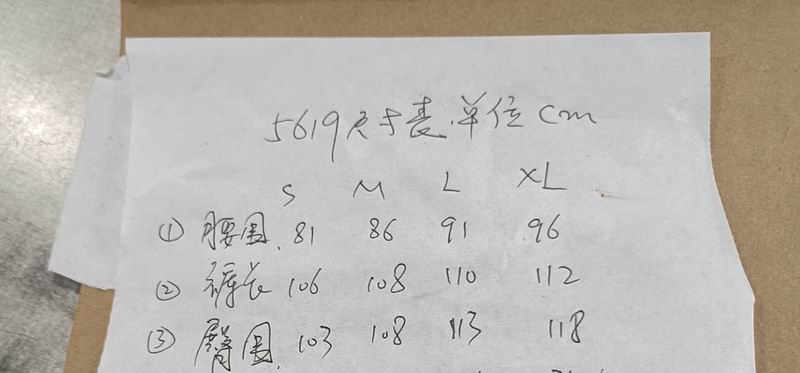 5619尺寸表.单位cm
S M L XL
① 腰围.81 86 91 96
② 裤长 106 108 110 112
③ 臀围.103 108 113 118